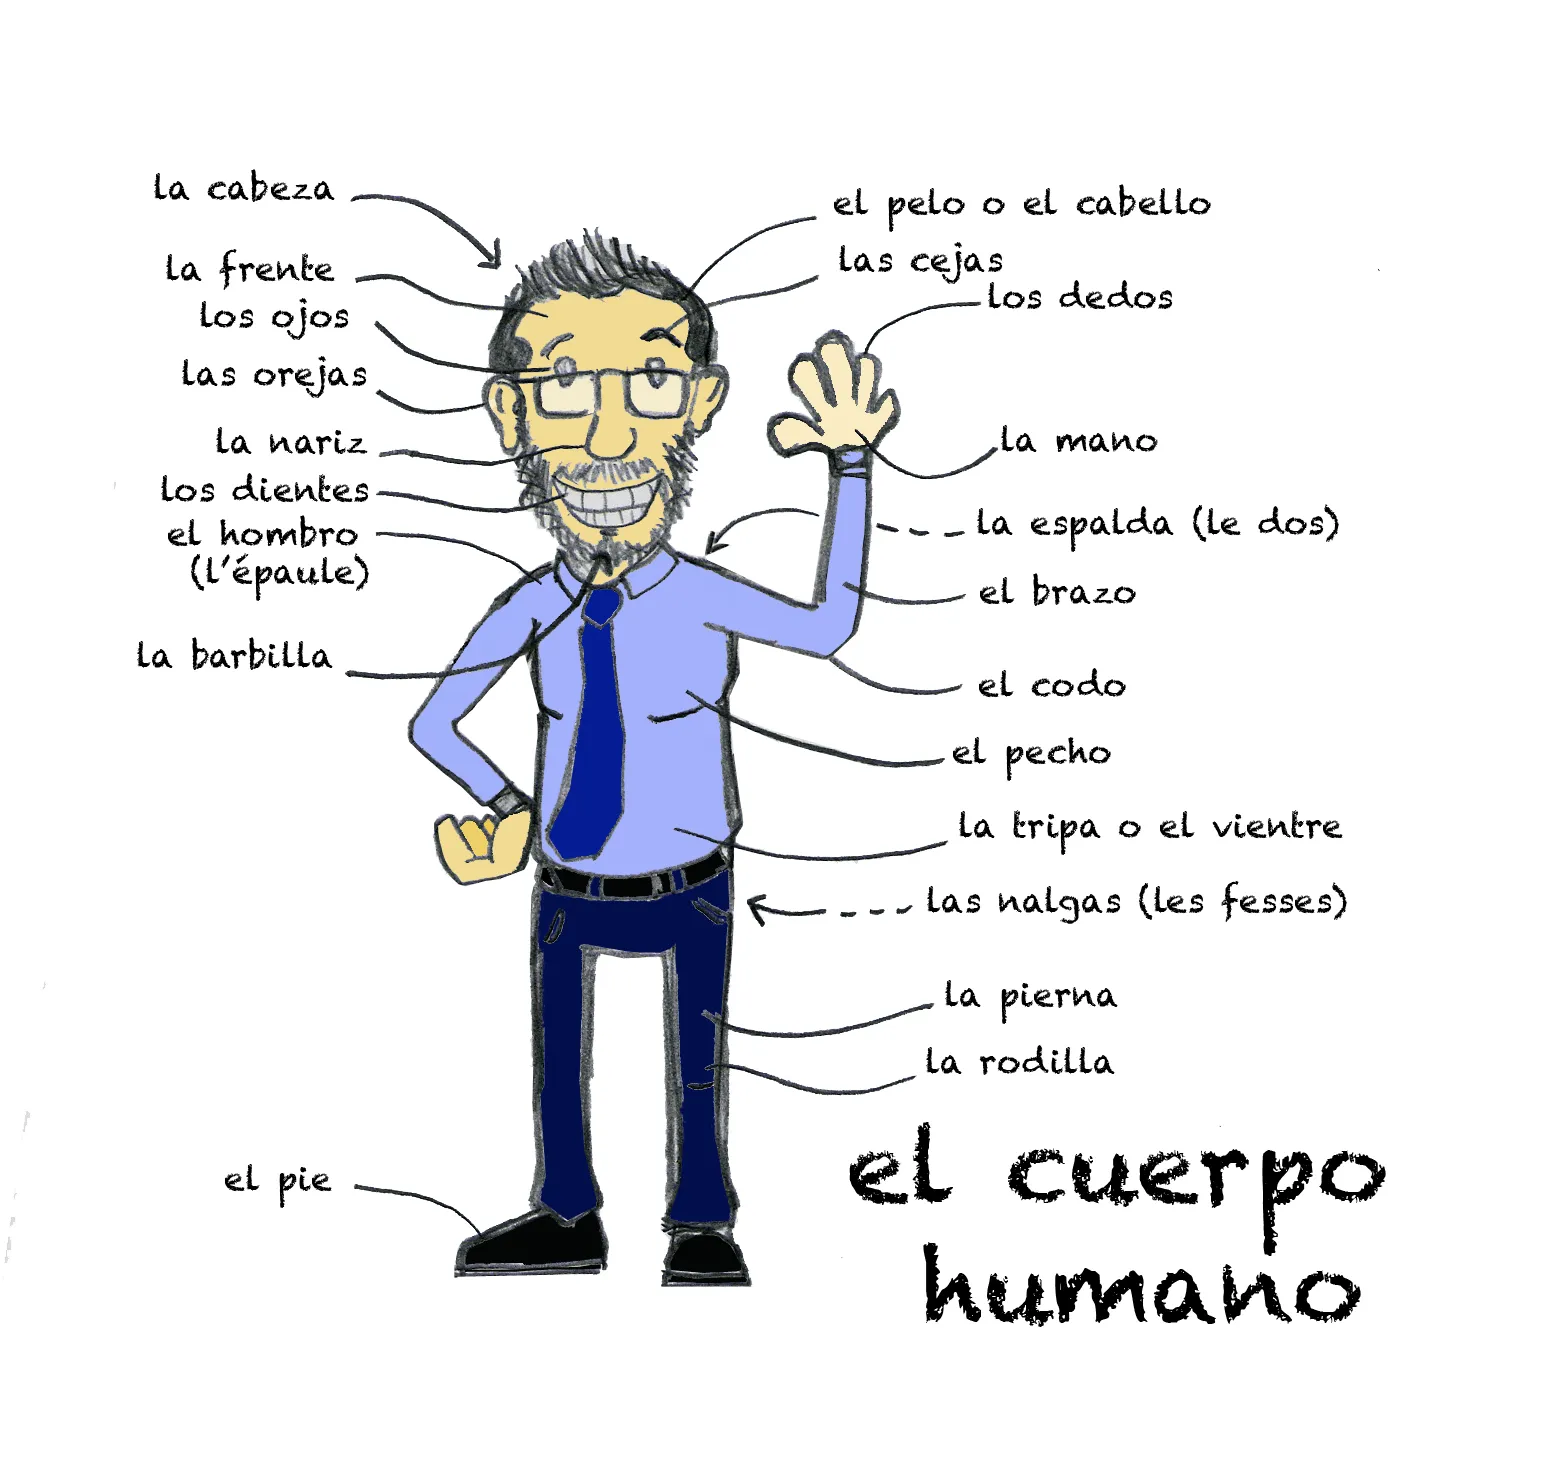 la cabeza
la frente
los ojos
las orejas
la nariz
los dientes
el hombro
(l'épaule)
la barbilla
el pie
el pelo o el cabello
las cejas
los dedos
la mano
la espalda (le dos)
el brazo
el codo
el pecho
la tripa o el vientre
las nalgas (les fesses)
la pierna
la rodilla
el cuerpo
humano